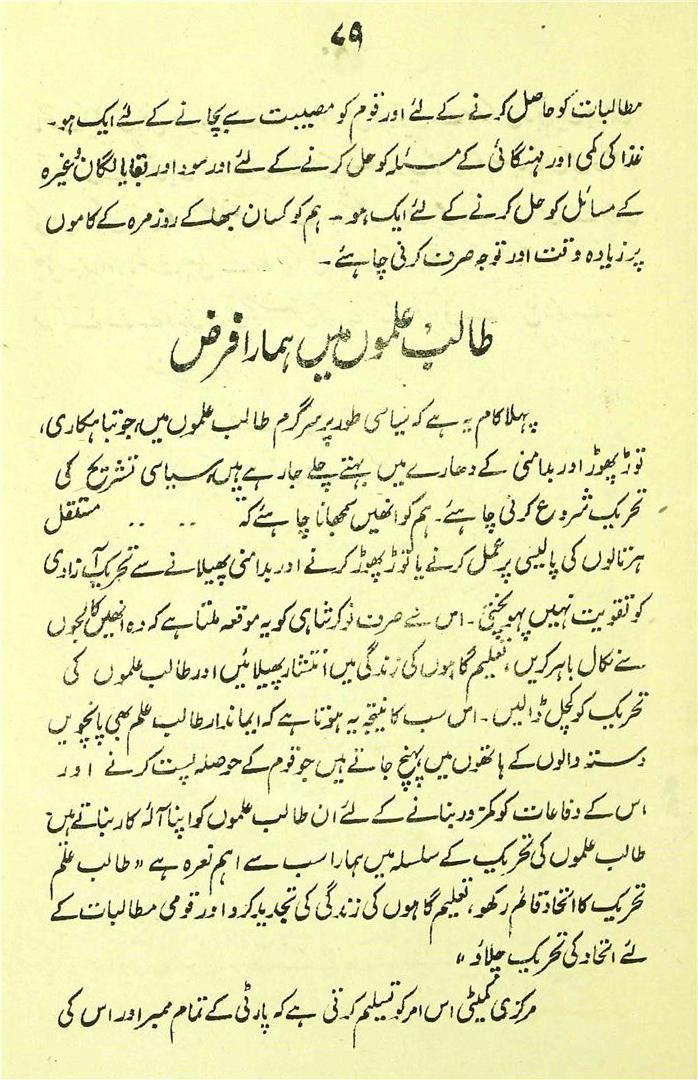 ۸۹
مطالبات کو حاصل کرنے کے لئے اور قوم کو مصیبت سے بچانے کے لئے ایک ہو۔
غذا کی کمی اور مہنگائی کے مسئلہ کو حل کرنے کے لئے اور سود اور بقایا لگان وغیرہ
کے مسائل کو حل کرنے کے لئے ایک ہو۔ ہم کو کسان سبھا کے روز مرہ کے کاموں
پر زیادہ وقت اور توجہ صرف کرنی چاہئے۔
طالب علموں میں ہمارا فرض
پہلا کام یہ ہے کہ سیاسی طور پر سرگرم طالب علموں میں، جو تباہ کاری،
توڑ پھوڑ اور بدامنی کے دھارے میں بہتے چلے جا رہے ہیں، سیاسی تشریح کی
تحریک شروع کرنی چاہئے۔ ہم کو انھیں سمجھانا چاہئے کہ .. .. مستقل
ہرتالوں کی پالیسی پر عمل کرنے یا توڑ پھوڑ کرنے اور بدامنی پھیلانے سے تحریک آزادی
کو تقویت نہیں پہونچتی۔ اس سے صرف نوکر شاہی کو یہ موقعہ ملتا ہے کہ وہ انھیں کالجوں
سے نکال باہر کریں، تعلیم گاہوں کی زندگی میں انتشار پھیلائیں اور طالب علموں کی
تحریک کو کچل ڈالیں۔ اس سب کا نتیجہ یہ ہوتا ہے کہ ایماندار طالب علم بھی پانچویں
دستہ والوں کے ہاتھوں میں پہنچ جاتے ہیں جو قوم کے حوصلہ پست کرنے اور
اس کے دفاعات کو کمزور بنانے کے لئے ان طالب علموں کو اپنا آلۂ کار بناتے ہیں
طالب علموں کی تحریک کے سلسلہ میں ہمارا سب سے اہم نعرہ ہے "طالب علم
تحریک کا اتحاد قائم رکھو، تعلیم گاہوں کی زندگی کی تجدید کرو اور قومی مطالبات کے
لئے اتحاد کی تحریک چلاؤ"
مرکزی کمیٹی اس امر کو تسیلم کرتی ہے کہ پارٹی کے تمام ممبر اور اس کی